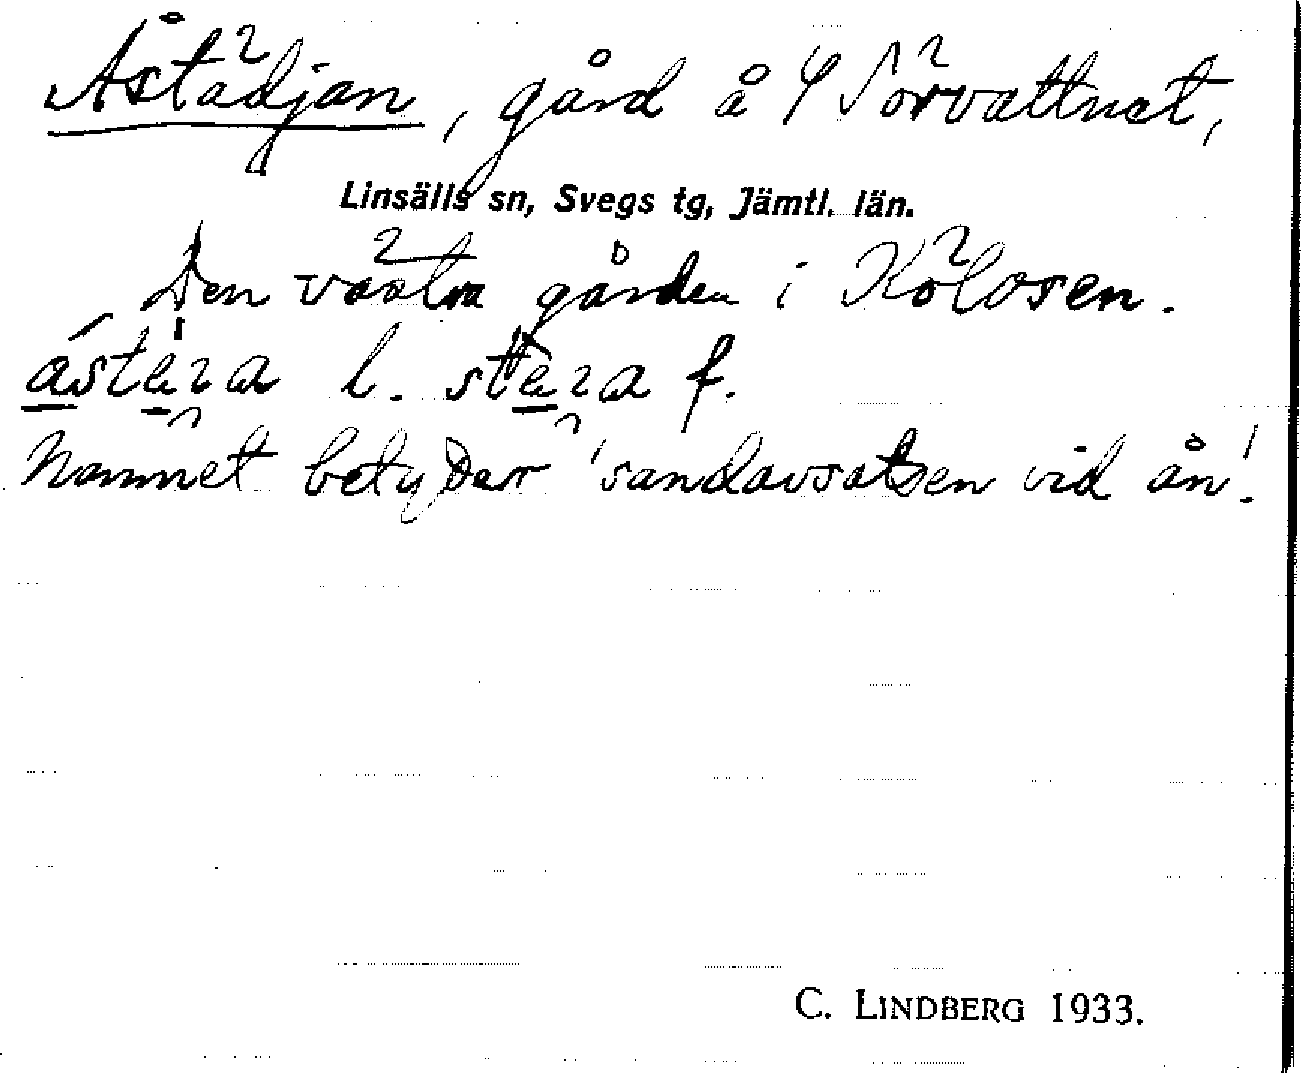 Åstädjan, gård å Sörvattnet,
Linsälls sn, Svegs tg, Jämtl. län.
Den västra gården i Kölosen.
Namnet betyder 'sandavsatsen vid ån'.
C. LINDBERG 1933.